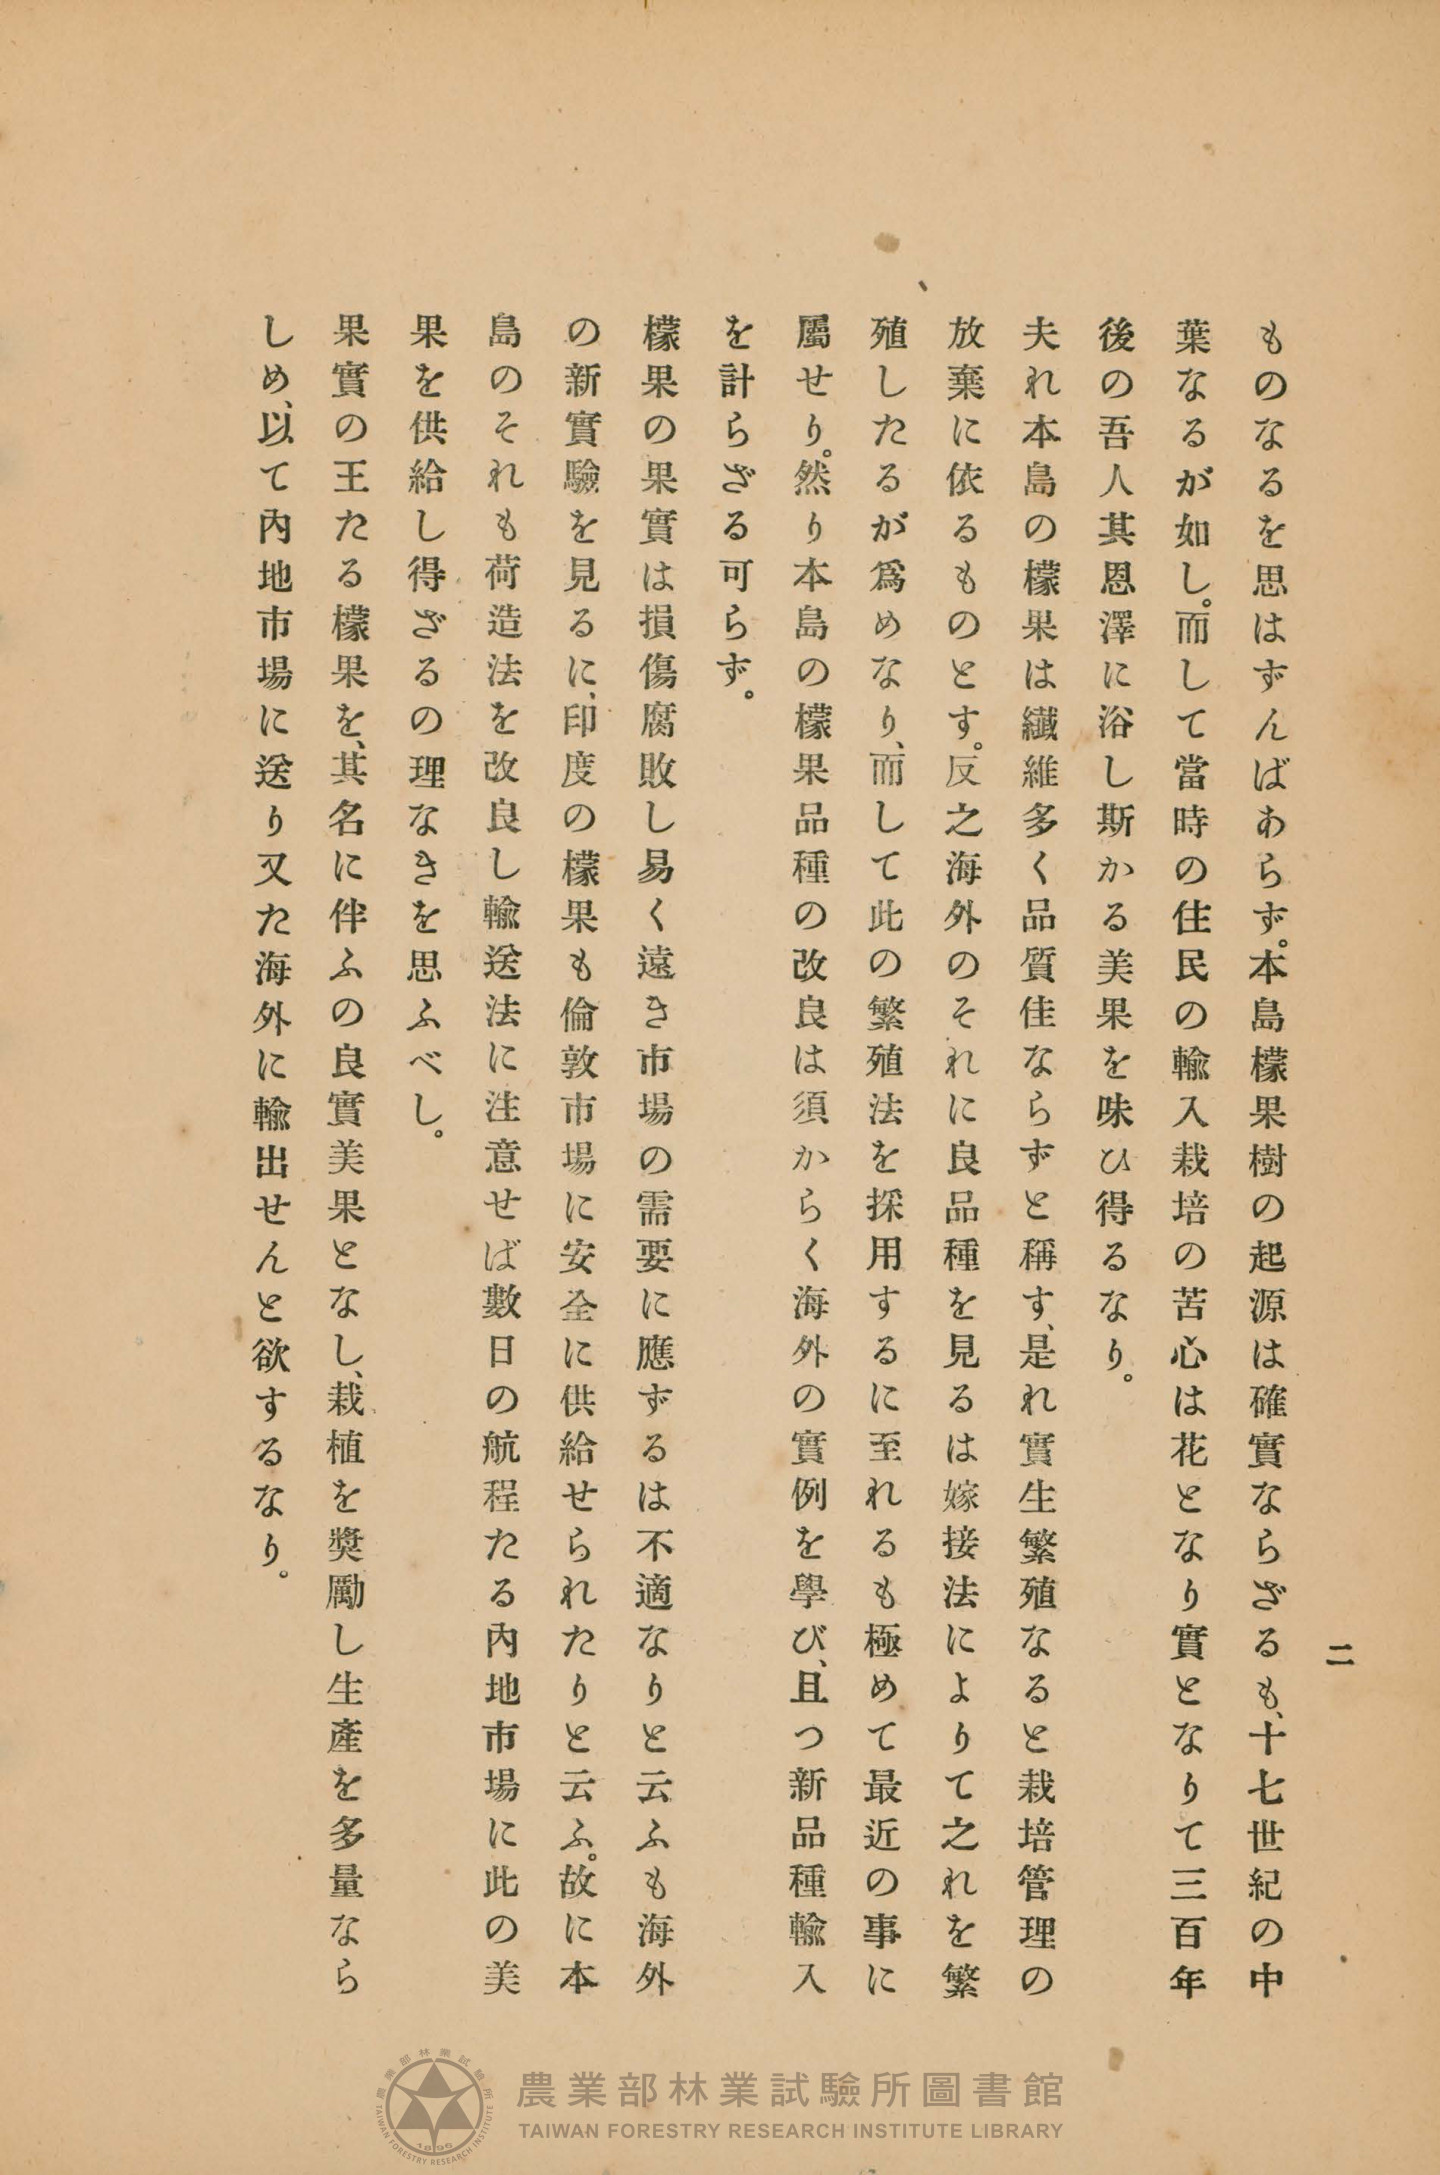 二
ものなるを思はずんばあらず。本島檬果樹の起源は確實ならざるも、十七世紀の中
葉なるが如し。而して當時の住民の輸入栽培の苦心は花となり實となりて三百年
後の吾人其恩澤に浴し斯かる美果を味ひ得るなり。
夫れ本島の檬果は纖維多く品質佳ならずと稱す、是れ實生繁殖なると栽培管理の
放棄に依るものとす。反之海外のそれに良品種を見るは嫁接法によりて之れを繁
殖したるが爲めなり、而して此の繁殖法を採用するに至れるも極めて最近の事に
屬せり。然り本島の檬果品種の改良は須からく海外の實例を學び、且つ新品種輸入
を計らざる可らず。
檬果の果實は損傷腐敗し易く遠き市場の需要に應ずるは不適なりと云ふも海外
の新實驗を見るに、印度の檬果も倫敦市場に安全に供給せられたりと云ふ。故に本
島のそれも荷造法を改良し輸送法に注意せば數日の航程たる內地市場に此の美
果を供給し得ざるの理なきを思ふべし。
果實の王たる檬果を、其名に伴ふの良實美果となし、栽植を奬勵し生產を多量なら
しめ、以て內地市場に送り又た海外に輸出せんと欲するなり。
農業部林業試驗所圖書館
TAIWAN FORESTRY RESEARCH INSTITUTE LIBRARY
農業部林業試驗所
TAIWAN FORESTRY RESEARCH INSTITUTE
1896